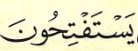 يَسْتَفْتِحُونَ